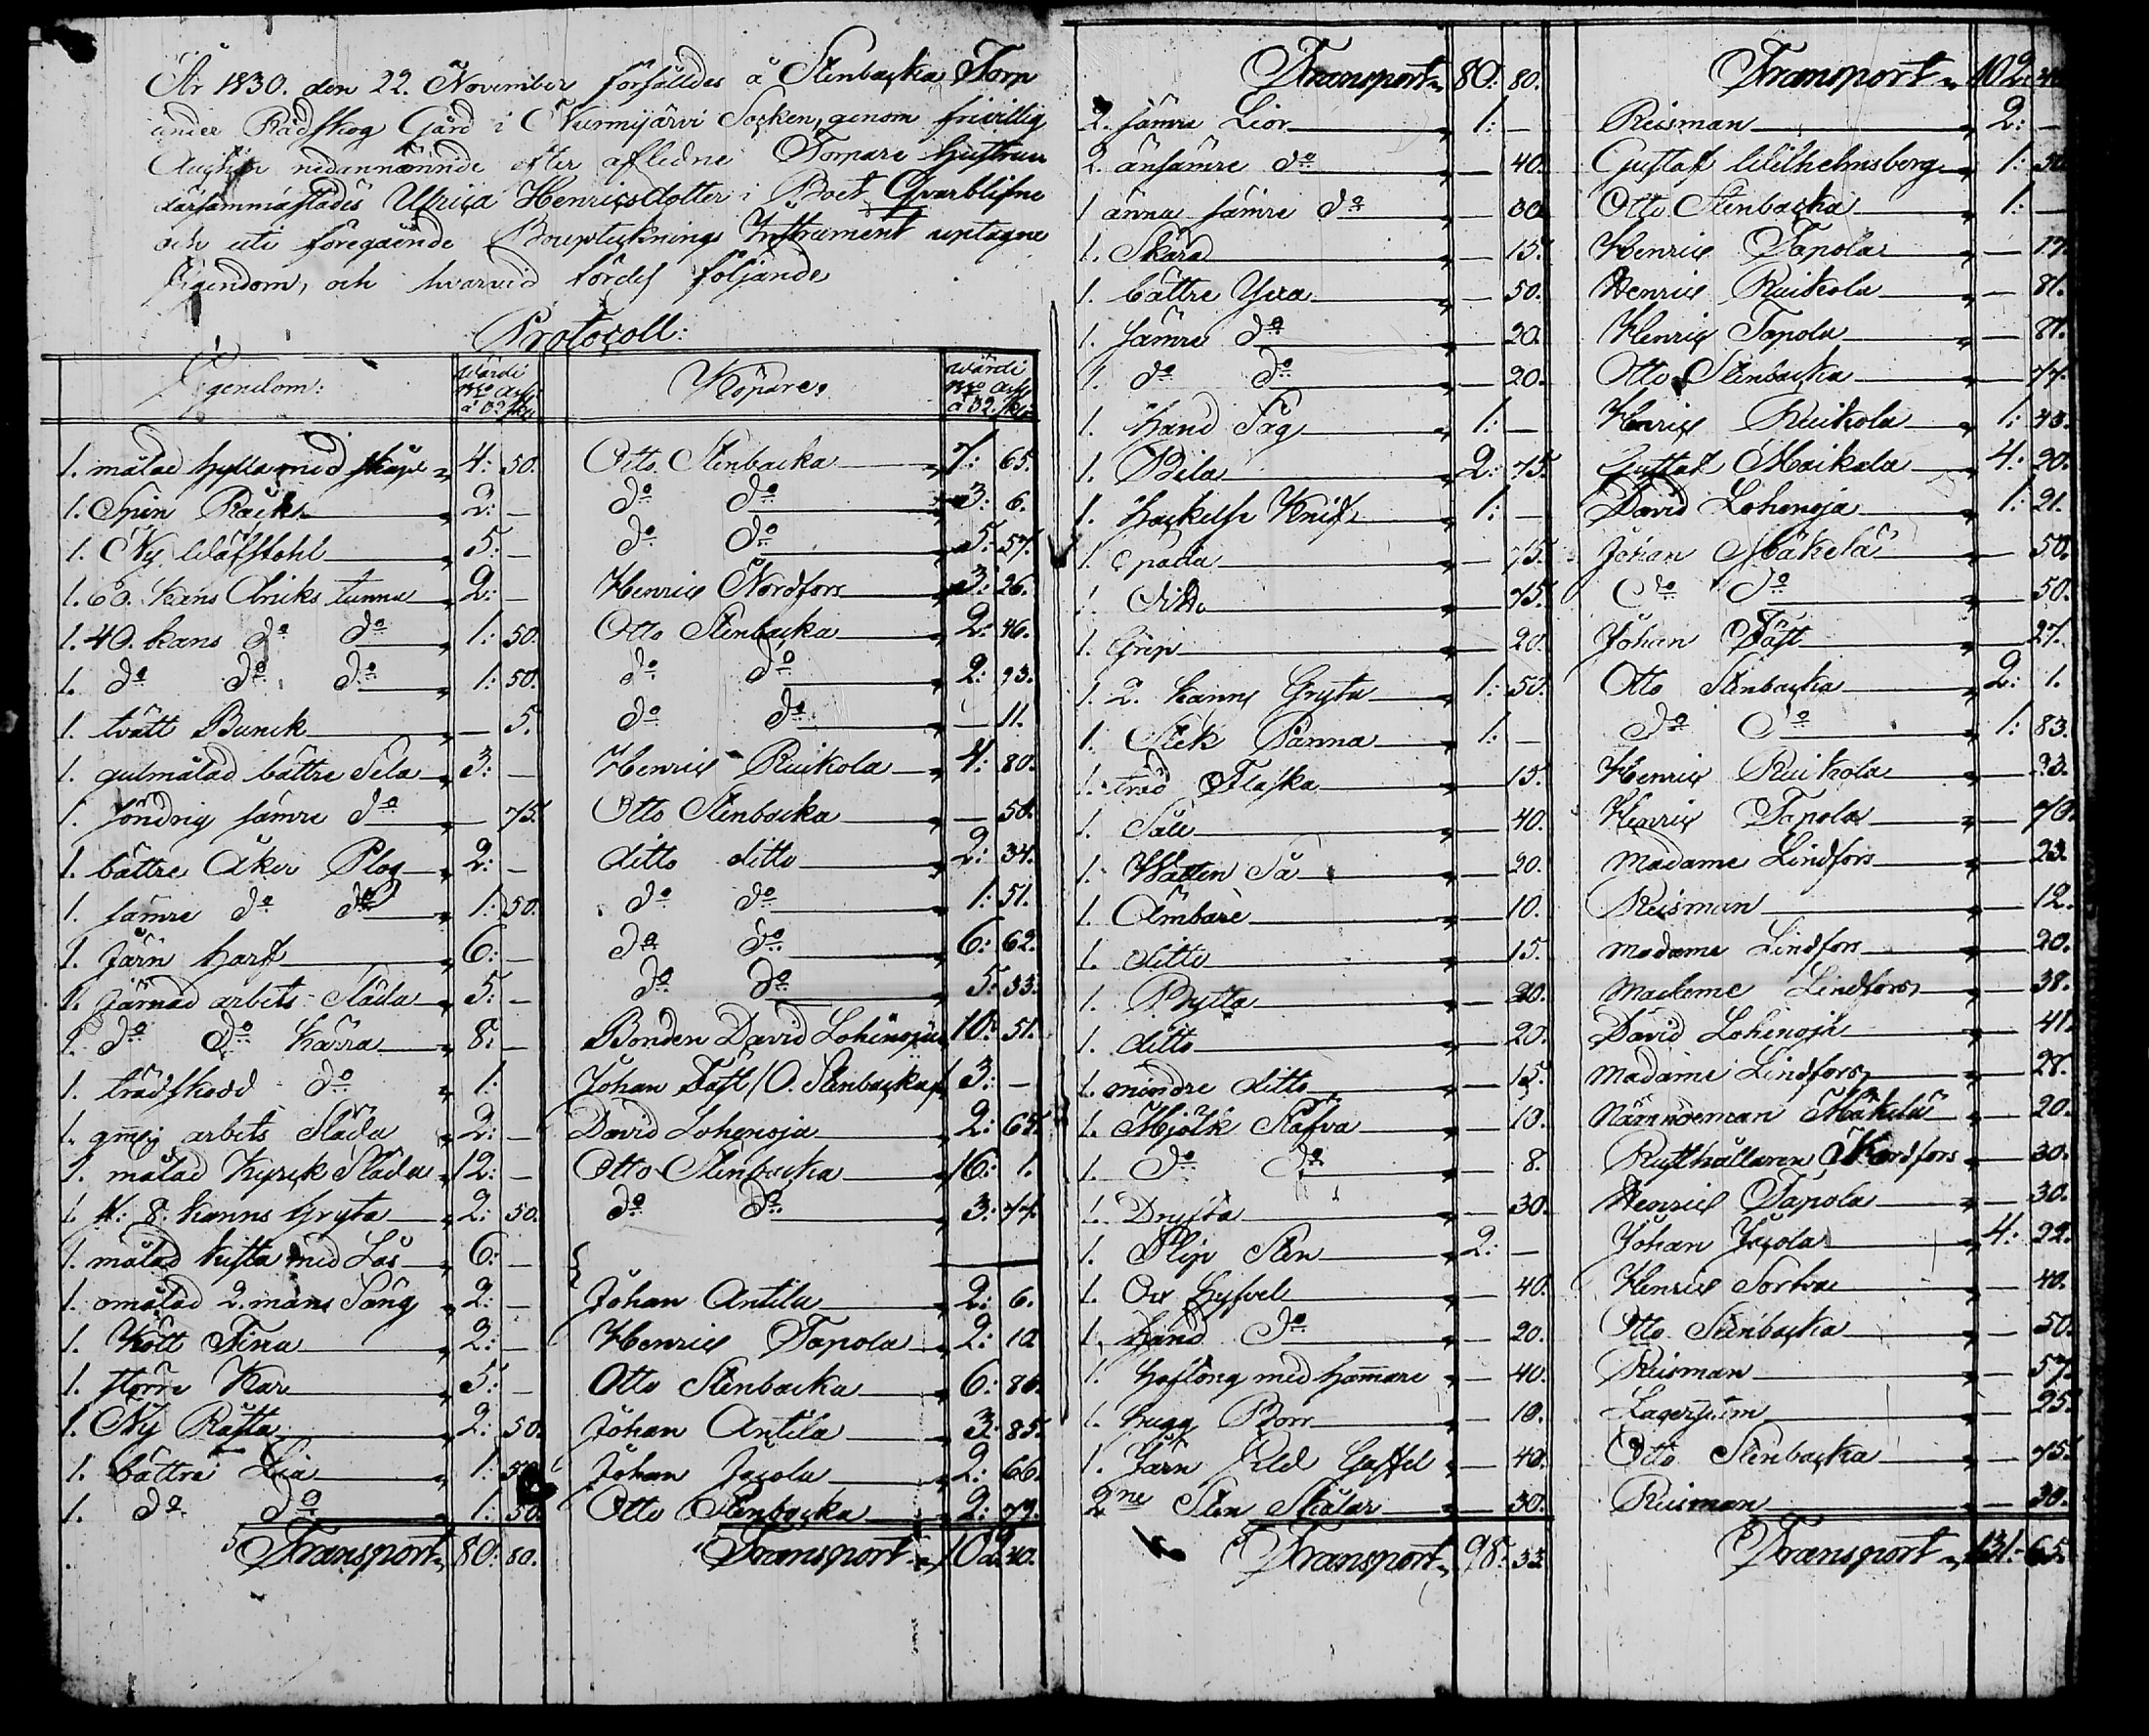 År 1830. den 22. November försåldes å Stenbacka Torp
under Rådskog Gård i Nurmijärvi Socken, genom frivillig
Auction nedannämnde efter aflidne Torpare hustrun
därsammastädes Ulrica Henricsdotter i Boet Qvarblifne
och uti föregående Bouptecknings Instrument uptagne
Egendom, och hvarvid fördes följande
Protocoll:
Egendom: wärde Köpare, wärde
1. målad hylla med skåp 4: 50. Otto Stenbacka 7: 65.
1. Spin Råck 2: — do do 3: 6.
1. Ny Wäfstohl 5: — do do 5: 57.
1. 60. kans Driks tunna 2: — Henric Nordfors 3: 26.
1. 40. kans do do 1: 50. Otto Stenbacka 2: 46.
1. do do do 1: 50. do do 2: 93.
1. tvätt Bunck — 5. do do — 11.
1. gulmålad bättre Sela 3: — Henric Ruikola 4: 80.
1. söndrig sämre do — 75. Otto Stenbacka — 50.
1. bättre Åker Plog 2: — ditto ditto 2: 34.
1. sämre do do 1: 50. do do 1: 51.
1. Järn harf 6: — do do 6: 62.
1. järnad arbets Släda 5: — do do 5: 33.
1. do do kärra 8: — Bonden David Lohenoja 10: 51.
1. trädskodd do 1: Johan Fast /O. Stenbacka/ 3: —
1. arbets Släda 2: — David Lohenoja 2: 65.
1. målad Kyrck Släda 12: — Otto Stenbacka 16: 1.
1. 8. kanns Gryta 2: 50. do do 3: 77.
1. målad kista med Lås 6: —
1. omålad 2. mans Säng 2: — Johan Antila 2: 6.
1. Kött Tina 2: — Henric Tapola 2: 10.
1. större Kar 5: — Otto Stenbacka 6: 86.
1. Ny Råtta 2: 50. Johan Antila 3: 85.
1. bättre Lia 1: 50. Johan Jacola 2: 66.
1. do do 1: 50. Otto Stenbacka 2: 79.
Transport 80: 80. Transport 102: 40.
Transport 80: 80. Transport 102:
2. sämre Lior 1: — Reisman 2: —
2. änsämre do — 40. Gustaf Wilhelmsberg 1: 50.
1 ännu sämre do — 30. Otto Stenbacka 1: —
1. Skära — 15. Henric Tapola — 17.
1. bättre Yxa — 50. Henric Ruikola — 81.
1. sämre do — 20. Henric Tapola — 81.
1. do do — 20. Otto Stenbacka — 77.
1. Hand Såg 1: — Henric Ruikola 1: 43.
1. Bila 2: 75. Gustaf Maikala 4: 20.
1. Hackelse Knif 1: — David Lohenoja 1: 21.
1. Spada — 75. Johan Mäkelä — 50.
1. Ditto 75. do do 50.
1. Grep 20. Johan Fast 27.
1. 2. kanns Gryta 1: 50. Otto Stenbacka 2: 1.
1. Stek Panna 1: — do do 1: 83.
1. träd Flaska 15. Henric Ruikola 23.
1. Såll 40. Henric Tapola 70.
1. Watten Så 20. Madame Lindfors 23.
1. Ämbare 10. Reisman 12.
1. ditto 15. Madame Lindfors 20.
1. Bytta — 20. Madame Lindfors — 38.
1. ditto 20. David Lohenoja 41.
1. mindre ditto — 15. Madame Lindfors — 28.
1. Mjölk Stäfva — 10. Nämndeman Mäkelä — 20.
1. do do — 8. Rusthållaren Nordfors — 30.
1. Dryfta — 30. Henric Tapola — 30.
1. Slip Sten 2: — Johan Jacola 4: 22.
1. Ox Hyfvel — 40. Henric — 40.
1. hand do — 20. Otto Stenbacka — 50.
1. Hoftång med hammare — 40. Reisman — 57.
1. hugg Borr — 10. — 25.
1. Järn Eld Gaffel — 40. Otto Stenbacka — 75.
2ne Sten Skålar — 30. Reisman — 30.
Transport 98: 33 Transport 131: 65.